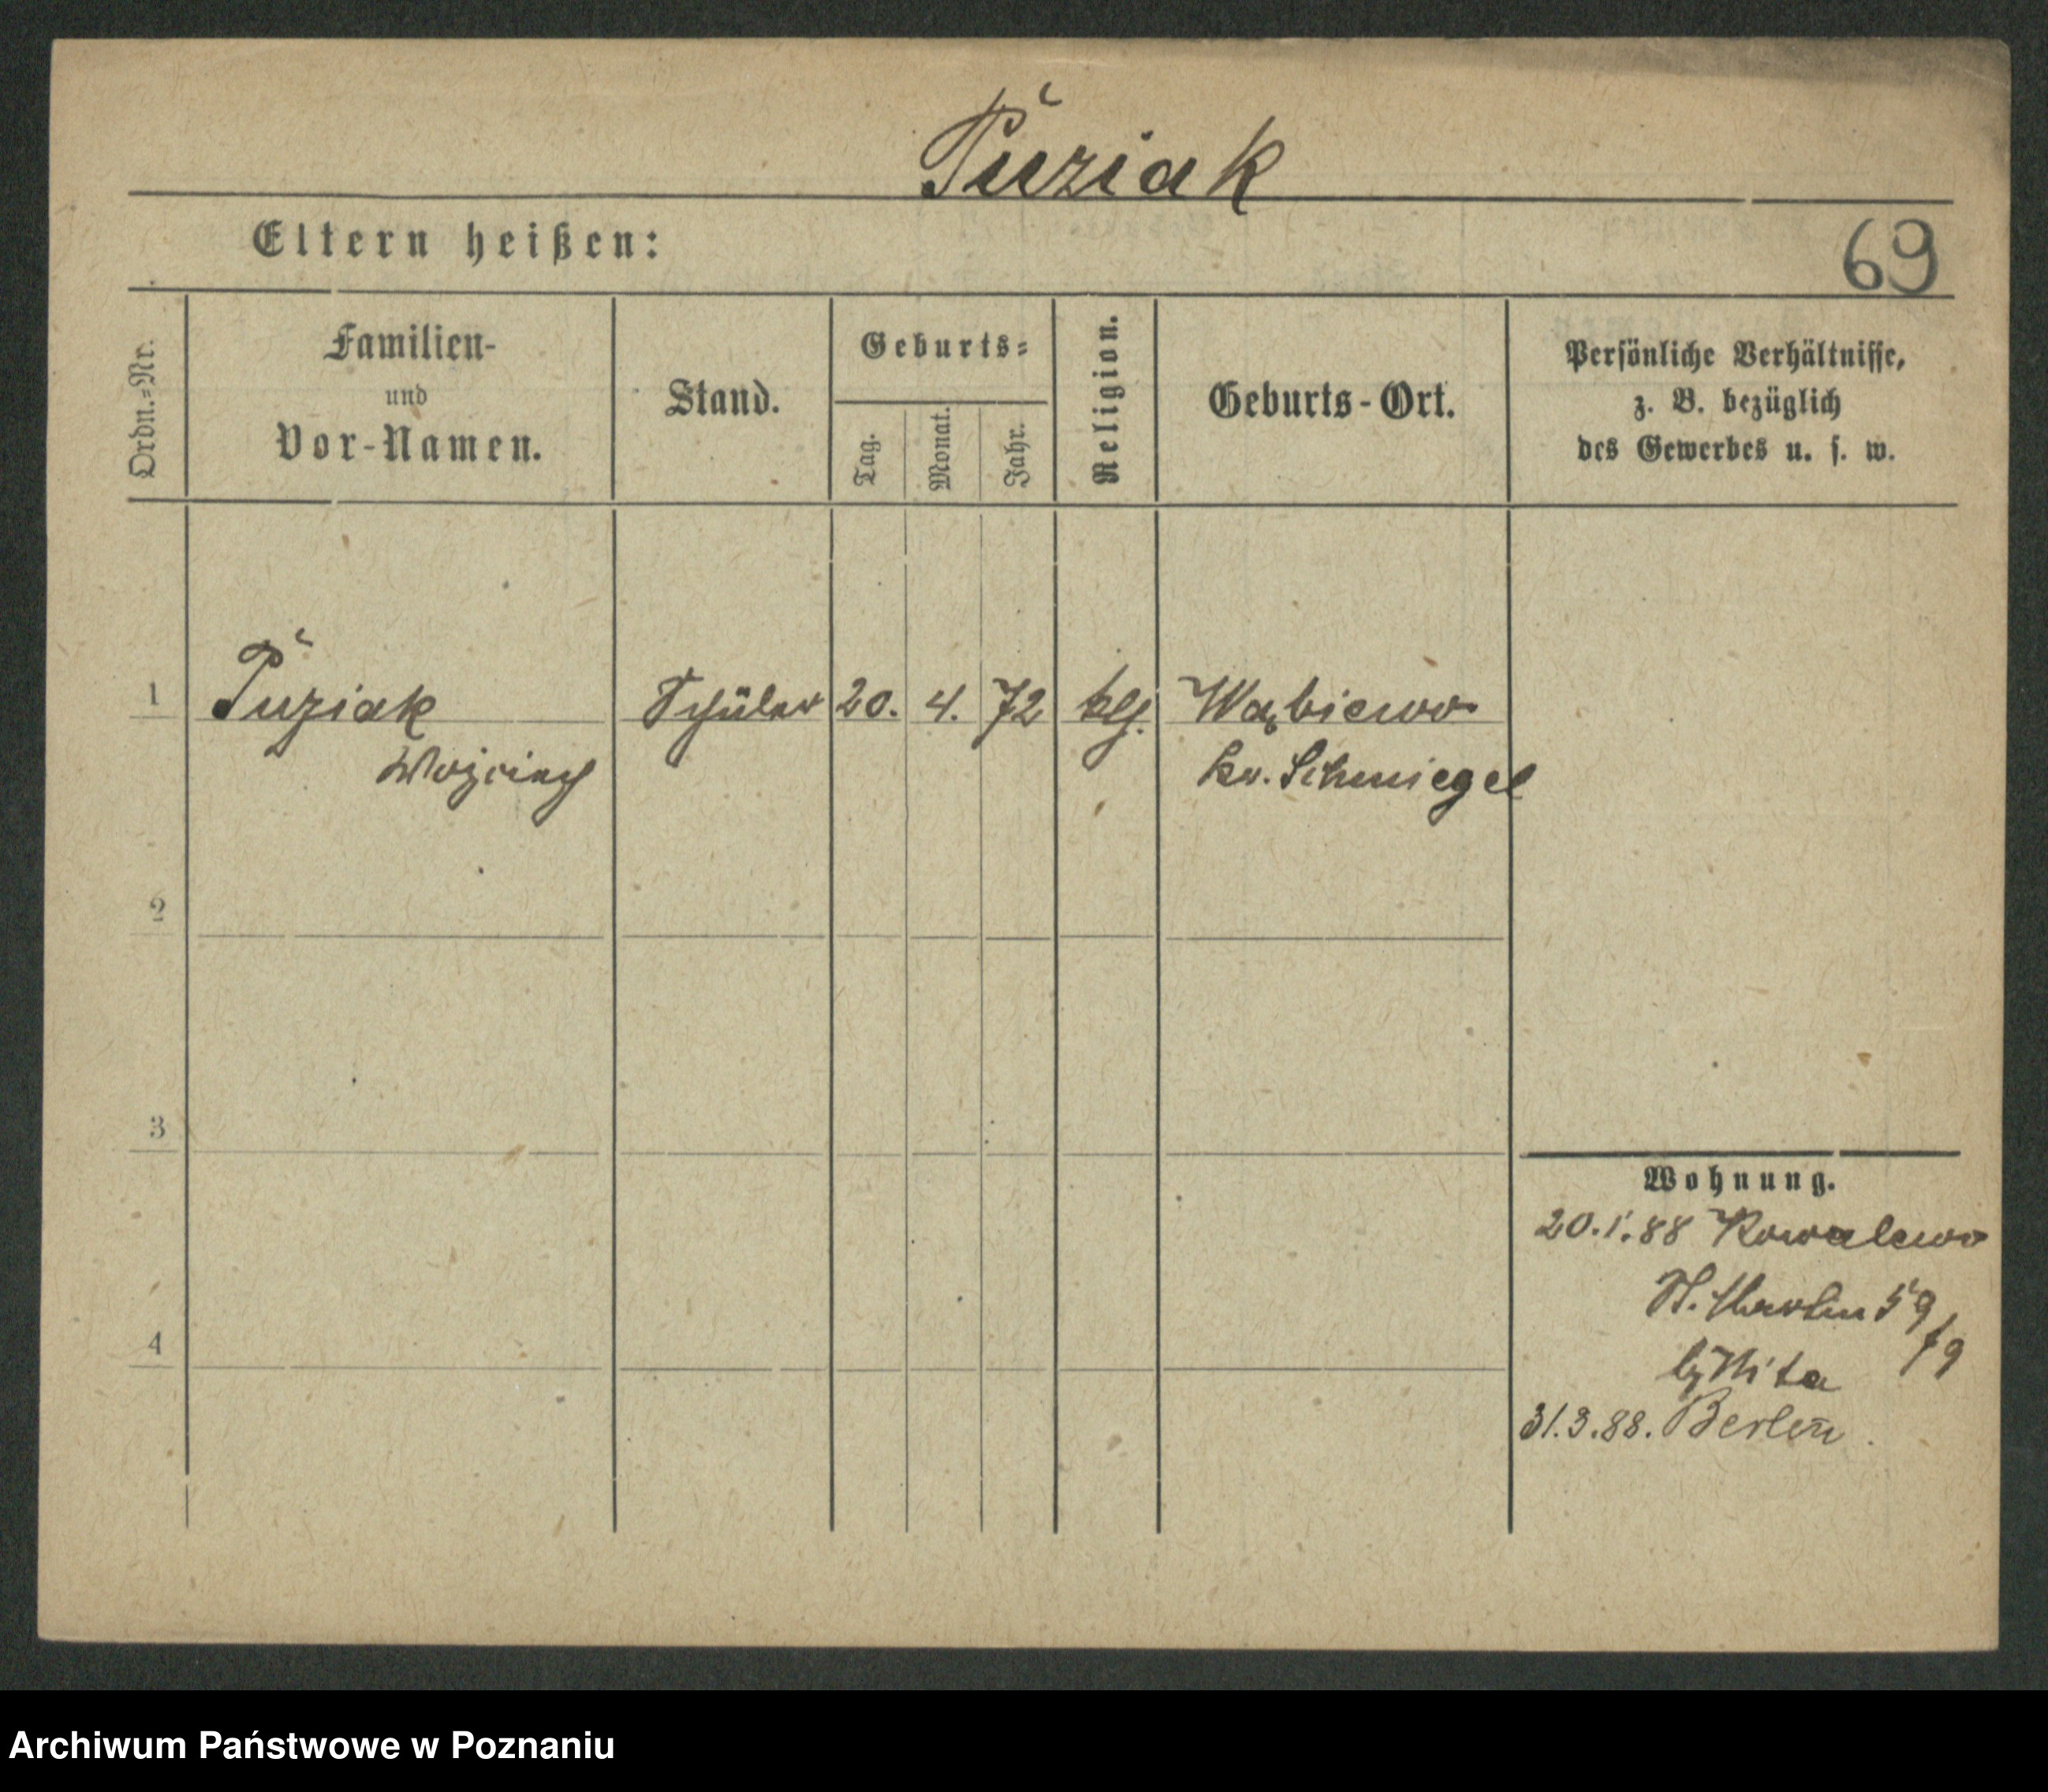 Puziak
Eltern heißen:
69
Ordn.-Nr.
Familien-
und
Vor-Namen.
Stand.
Geburts-
Tag.
Monat.
Jahr.
Religion.
Geburts-Ort.
Persönliche Verhältnisse,
z. B. bezüglich
des Gewerbes u. s. w.
1 Puziak Schüler 20. 4. 72 klj. Wąbiewo
Wojciech Kr. Schmiegel
2
3
4
Wohnung.
20.1.88 Kowalewo
St. Martin 59
f 9
Berlin
31.3.88.
Archiwum Państwowe w Poznaniu